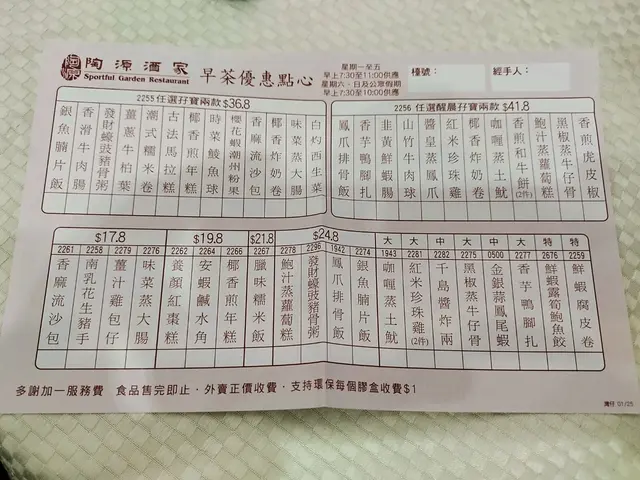 陶源酒家
Sportful Garden Restaurant
早茶優惠點心
星期一至五
早上7:30至11:00供應
星期六、日及公眾假期
早上7:30至10:00供應
檯號：
經手人：
2255 任選孖寶兩款 $36.8
銀魚腩片飯
香滑牛肉腸
發財蠔豉豬骨粥
薑蔥牛柏葉
潮式糯米卷
古法馬拉糕
椰香煎年糕
時菜鯪魚球
櫻花蝦潮州粉果
香麻流沙包
椰香炸奶卷
味菜蒸大腸
白灼西生菜
2256 任選醒晨孖寶兩款 $41.8
鳳爪排骨飯
香芋鴨腳扎
韭黃鮮蝦腸
山竹牛肉球
醬皇蒸鳳爪
紅米珍珠雞
椰香炸奶卷
咖喱蒸土魷
香煎和牛餅(2件)
鮑汁蒸蘿蔔糕
黑椒蒸牛仔骨
香煎虎皮椒
$17.8
2261 香麻流沙包
2258 南乳花生豬手
2279 薑汁雞包仔
2276 味菜蒸大腸
$19.8
2262 養顏紅棗糕
2264 安蝦鹹水角
2266 椰香煎年糕
$21.8
2267 臘味糯米飯
$24.8
2278 鮑汁蒸蘿蔔糕
2296 發財蠔豉豬骨粥
1942 鳳爪排骨飯
2274 銀魚腩片飯
大 1943 咖喱蒸土魷
大 2281 紅米珍珠雞(2件)
中 2282 千島醬炸兩
大 2275 黑椒蒸牛仔骨
中 0500 金銀蒜鳳尾蝦
大 2277 香芋鴨腳扎
特 2676 鮮蝦露筍鮑魚餃
特 2259 鮮蝦腐皮卷
多謝加一服務費 食品售完即止．外賣正價收費．支持環保每個膠盒收費$1
灣仔 01/25